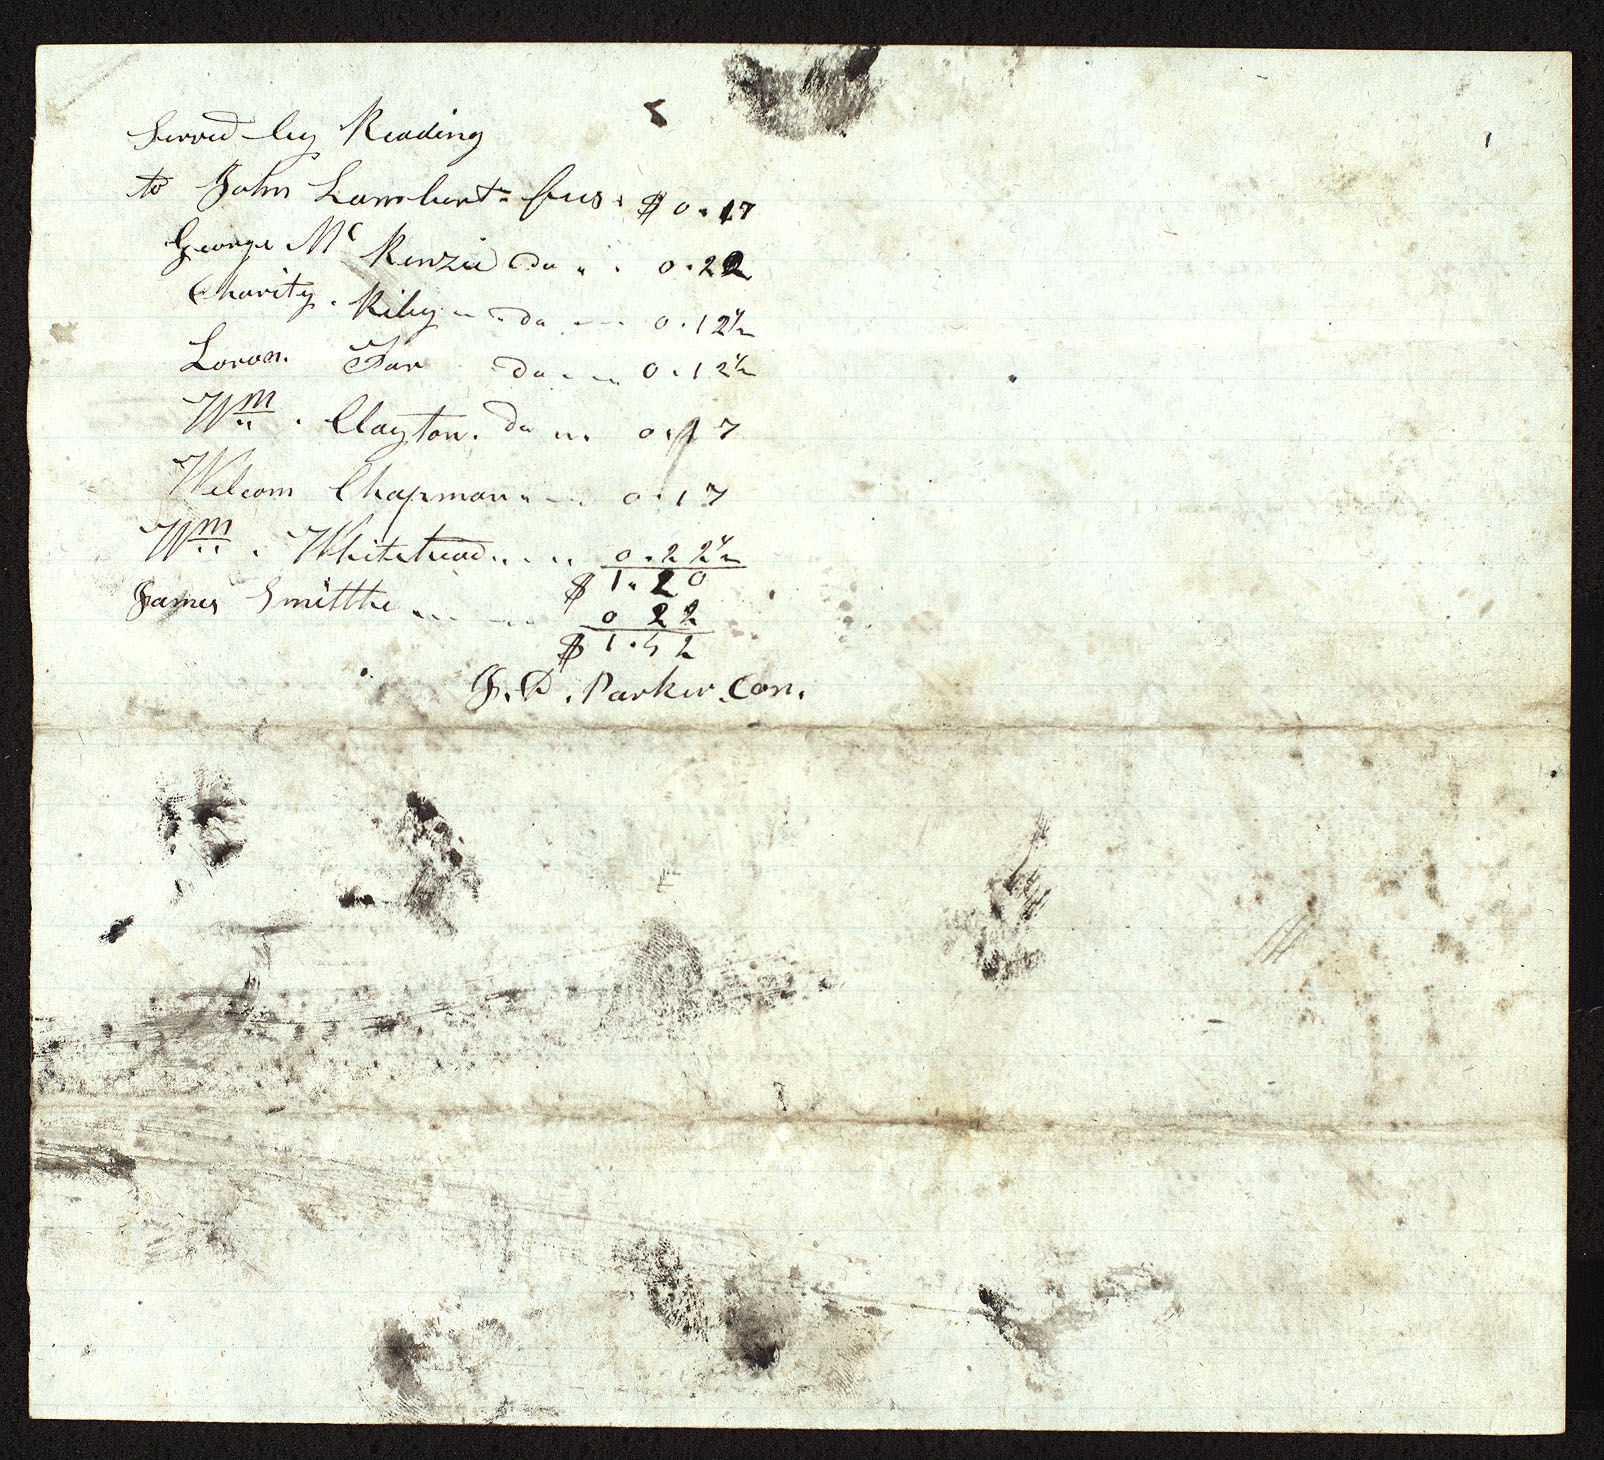 Served by Reading
to John Lambert - fees. $ 0.17
George Mc Kenzie do " . 0.22
Charity. Riley do 0.12½
Loron. Far do 0.12½
Wm. Clayton. do 0.17
Welcom Chapman 0.17
Wm. Whitehead 0.22½
$ 1.20
James Smithe 0 22
$ 1.42
J. D. Parker. Con.